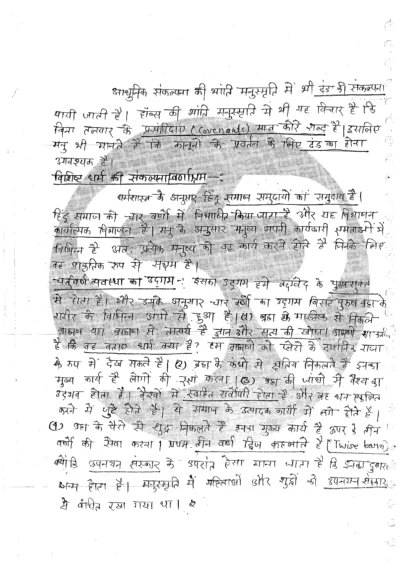 आधुनिक संकल्पना की भांति मनुस्मृति में भी दंड की संकल्पना
पायी जाती है। हॉब्स की भांति मनुस्मृति में भी यह विचार है कि
बिना तलवार के प्रसंविदाएं (Covenants) मात्र कोरे शब्द है। इसलिए
मनु भी मानते है कि कानूनों के प्रवर्तन के लिए दंड का होना
आवश्यक है।
विशिष्ट धर्म की संकल्पना/वर्णाश्रम --:
धर्मशास्त्र के अनुसार हिंदू समाज समुदायों का समुदाय है।
हिंदू समाज को चार वर्णों में विभाजित किया जाता है और यह विभाजन
कार्यात्मक विभाजन है। मनु के अनुसार मनुष्य अपनी कार्यकारी क्षमताओं में
विभिन्न है अतः प्रत्येक मनुष्य को वह कार्य करने होते है जिनके लिए
वह प्राकृतिक रूप से सक्षम है।
चर्तुवर्ण व्यवस्था का उद्गम -: इसका उद्गम हमें ऋग्वेद के पुरुषसूक्त
में होता है। और उसके अनुसार चार वर्णों का उद्गम विराट पुरुष ब्रह्मा के
शरीर के विभिन्न अंगों से हुआ है। (1) ब्रह्मा के मस्तिष्क से निकले
ब्राह्मण का तात्पर्य है ज्ञान और सत्य की खोज।
है कि वह बताए धर्म क्या है? हम ब्राह्मणों को प्लेटो के दार्शनिक राजा
के रूप में देख सकते है। (2) ब्रह्मा के कंधों से क्षत्रिय निकलते है इनका
मुख्य कार्य है लोगों की रक्षा करना। (3) ब्रह्मा की जांघों से वैश्य का
उद्भव होता है। वैश्यों में स्वहित सर्वोपरि होता है और वह धन
करने में जुटे होते है। ये समाज के उत्पादक कार्यों में लगे होते है।
(4) ब्रह्मा के पैरों से शूद्र निकलते है इनका मुख्य कार्य है ऊपर के तीन
वर्णों की सेवा करना। प्रथम तीन वर्णों द्विज कहलाते है (Twise born)
क्योंकि उपनयन संस्कार के उपरांत ऐसा माना जाता है कि इनका दुबारा
जन्म होता है। मनुस्मृति में महिलाओं और शूद्रों को उपनयन संस्कार
से वंचित रखा गया था।